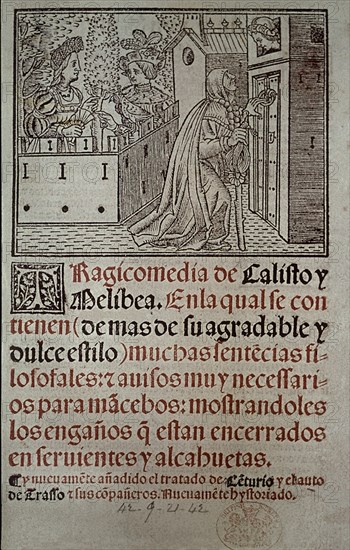 TRagicomedia de Calisto y
Melibea. En la qual se con
tienen (de mas de su agradable y
dulce estilo) muchas sentẽcias fi-
losofales: ⁊ auisos muy necessari-
os para mãcebos: mostrandoles
los engaños q̃ estan encerrados
en seruientes y alcahuetas.
⸿ Y nueuamẽte añadido el tratado de Cẽturio y el auto
de Trasso ⁊ sus cõpañeros. Nueuamẽte hystoriado.
42-9-21-42